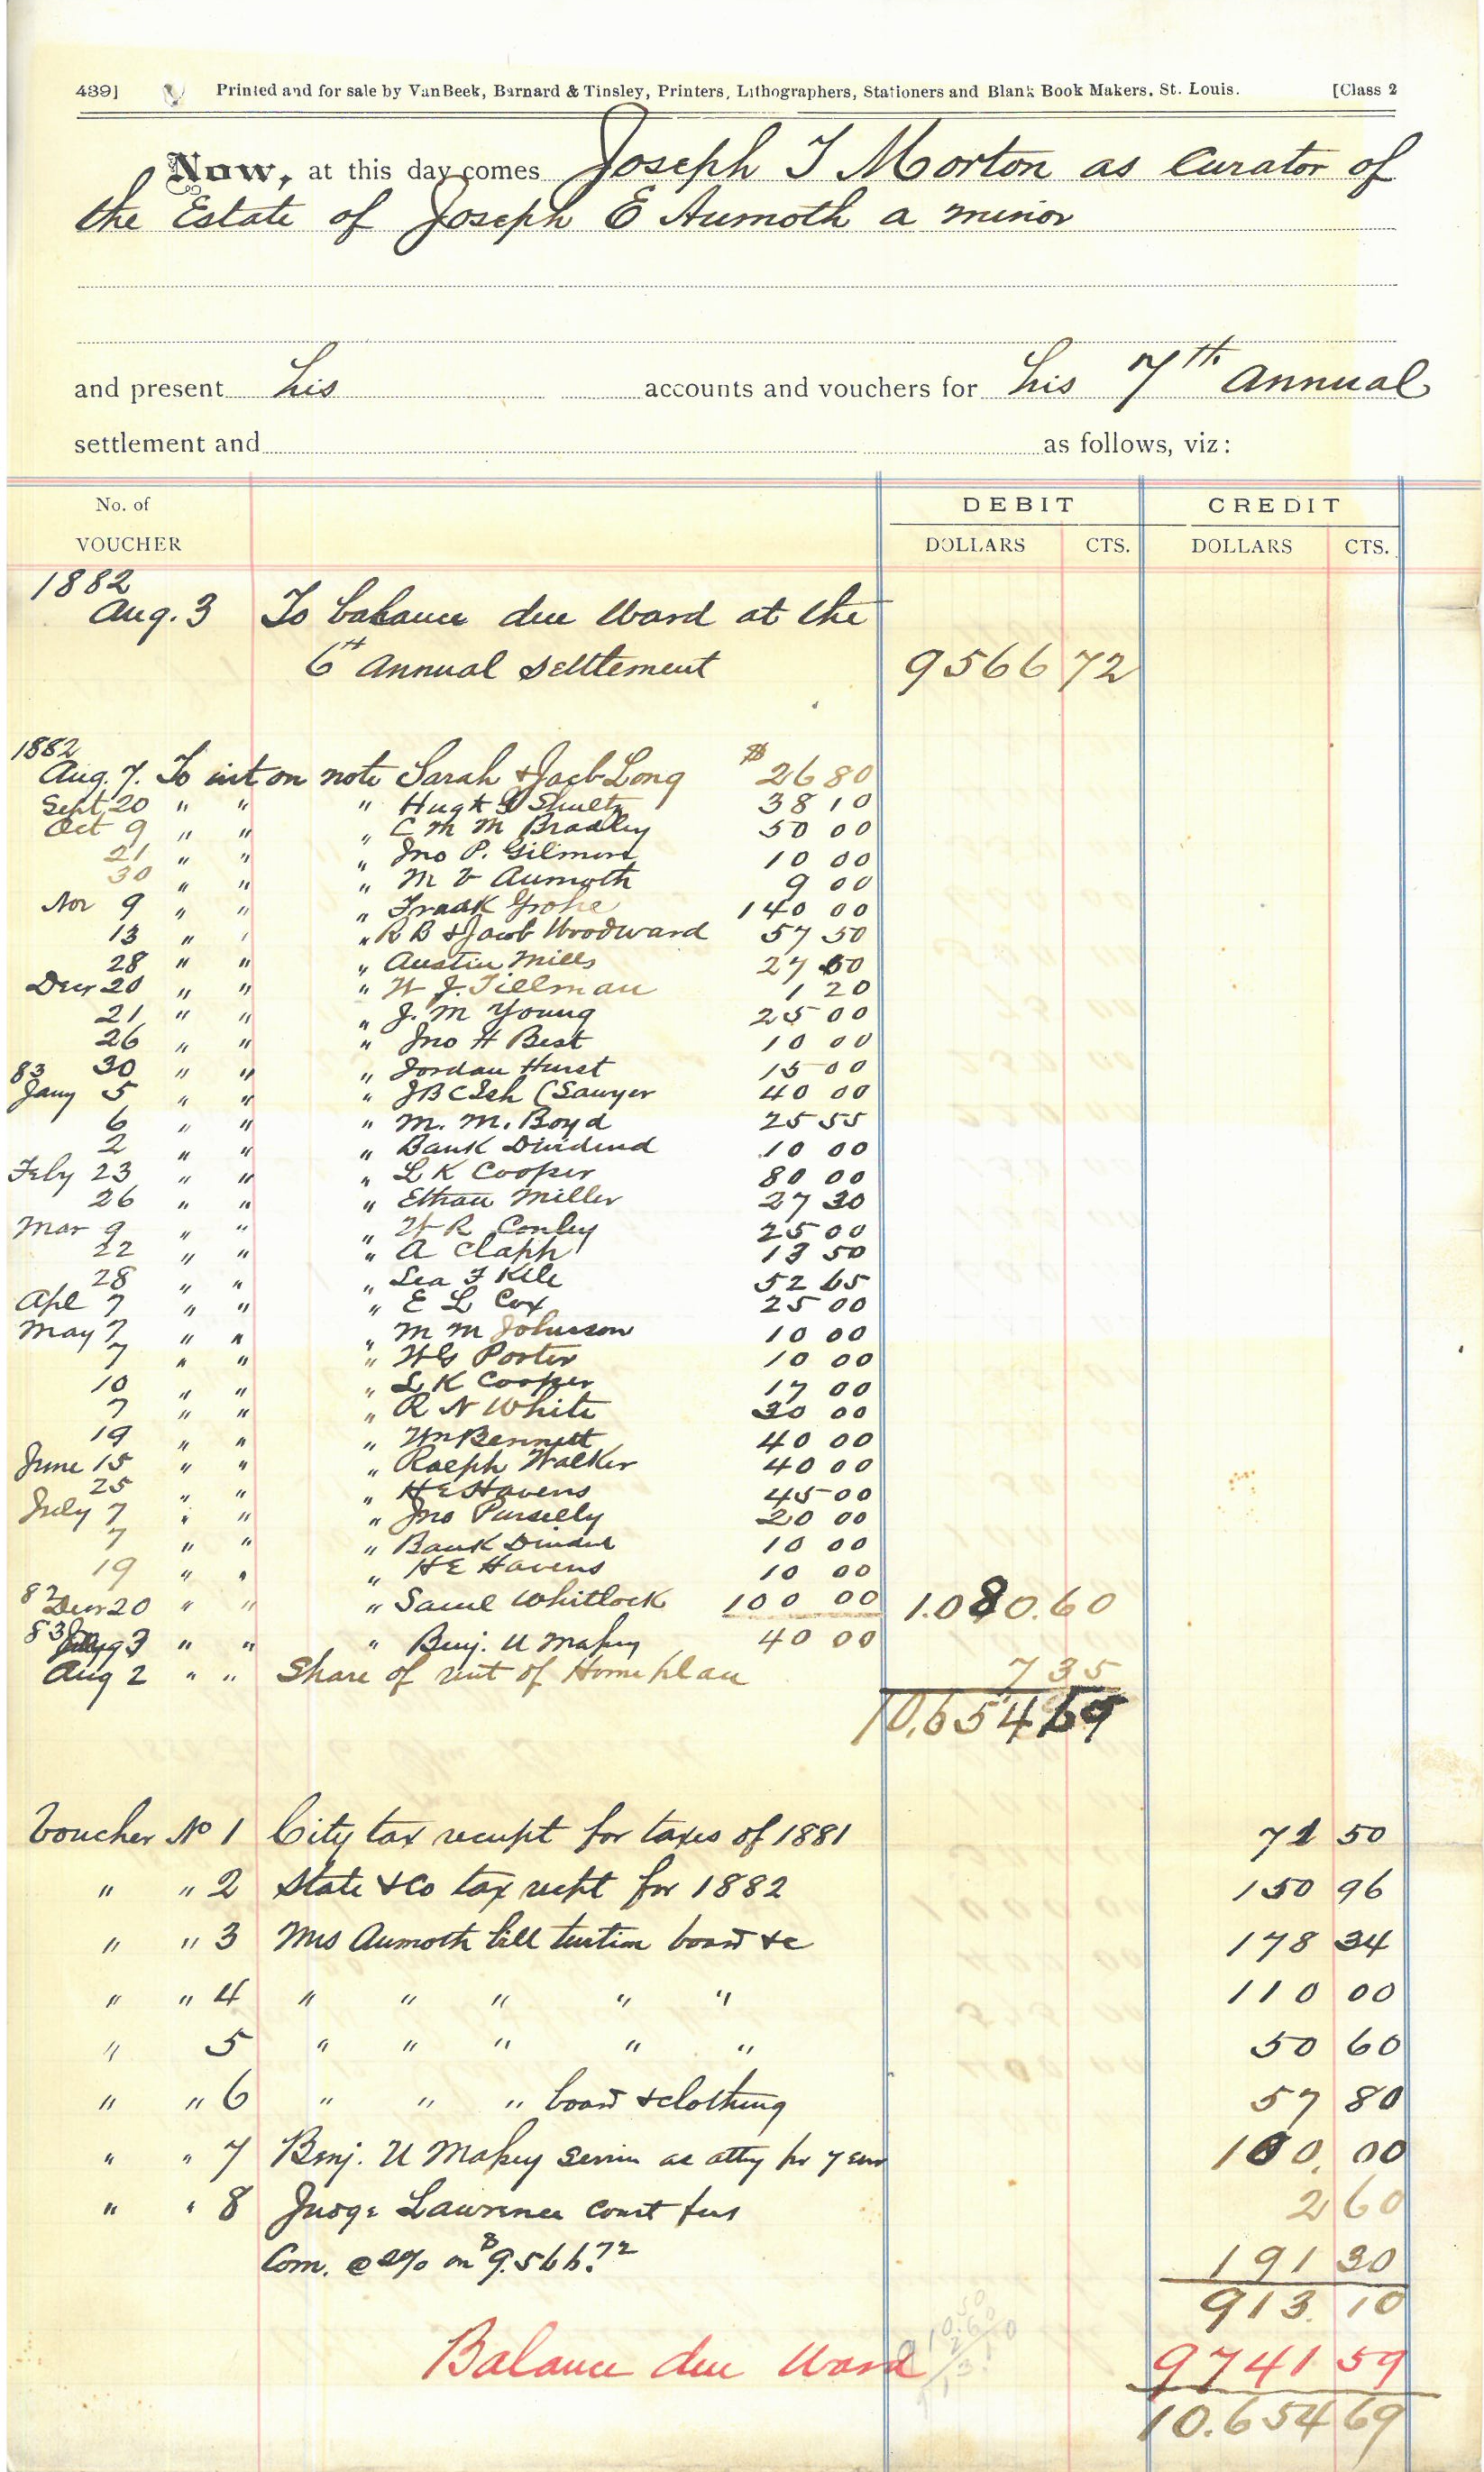 439] Printed and for sale by VanBeek, Barnard & Tinsley, Printers, Lithographers, Stationers and Blank Book Makers, St. Louis. [Class 2
Now, at this day comes Joseph T Morton as Curator of
the Estate of Joseph E Aumoth a minor
and present his accounts and vouchers for his 7th Annual
settlement and as follows, viz:
No. of VOUCHER DEBIT CREDIT
DOLLARS CTS. DOLLARS CTS.
1882
Aug. 3 To balance due Ward at the
6th Annual settlement 9566 72
1882
Aug. 7. To int on note Sarah & Jacb Long $ 26 80
Sept 20 " " " Hugh G Shultz 38 10
Oct 9 " " " C M M Bradley 50 00
21 " " " Jno P. Gilmore 10 00
30 " " " M V Aumoth 9 00
Nov 9 " " " Frank Grohe 140 00
13 " " " R B & Jacob Woodward 57 50
28 " " " Austin Mills 27 60
Decr 20 " " " W J. Tillman 1 20
21 " " " J. M Young 25 00
26 " " " Jno H Best 10 00
30 " " " Jordan Hurst 15 00
83 Jany 5 " " " J B C Ish (Sawyer 40 00
6 " " " M. M. Boyd 25 55
2 " " " Bank Dividend 10 00
Feby 23 " " " L K Cooper 80 00
26 " " " Ethan Miller 27 30
Mar 9 " " " W R Conley 25 00
22 " " " A Clapp 13 50
28 " " " Lea F Kile 52 65
Apl 7 " " " E L Cox 25 00
May 7 " " " M M Johnson 10 00
7 " " " W G Porter 10 00
10 " " " L K Cooper 17 00
7 " " " R N White 30 00
19 " " " Wm Bennett 40 00
June 15 " " " Ralph Walker 40 00
25 " " " H E Havens 45 00
July 7 " " " Jno Purselly 20 00
7 " " " Bank Dividend 10 00
19 " " " H E Havens 10 00
82 Decr 20 " " " Saml Whitlock 100 00 1.080.60
83 3 " " " Benj. U Massey 40 00
Aug 2 " " Share of rent of Home place 7 35
10.654 69
Voucher No 1 City tax receipt for taxes of 1881 71 50
" " 2 State & Co tax recpt for 1882 150 96
" " 3 Mrs Aumoth bill tuition board &c 178 34
" " 4 " " " " " 110 00
" 5 " " " " " 50 60
" " 6 " " " board & clothing 57 80
" " 7 Benj. U Massey Servics as atty for year 100. 00
" " 8 Judge Lawrence court fees 2 60
Com. @ 2% on $9.566.72 191 30
913. 10
Balance due Ward 9741 59
10.654 69